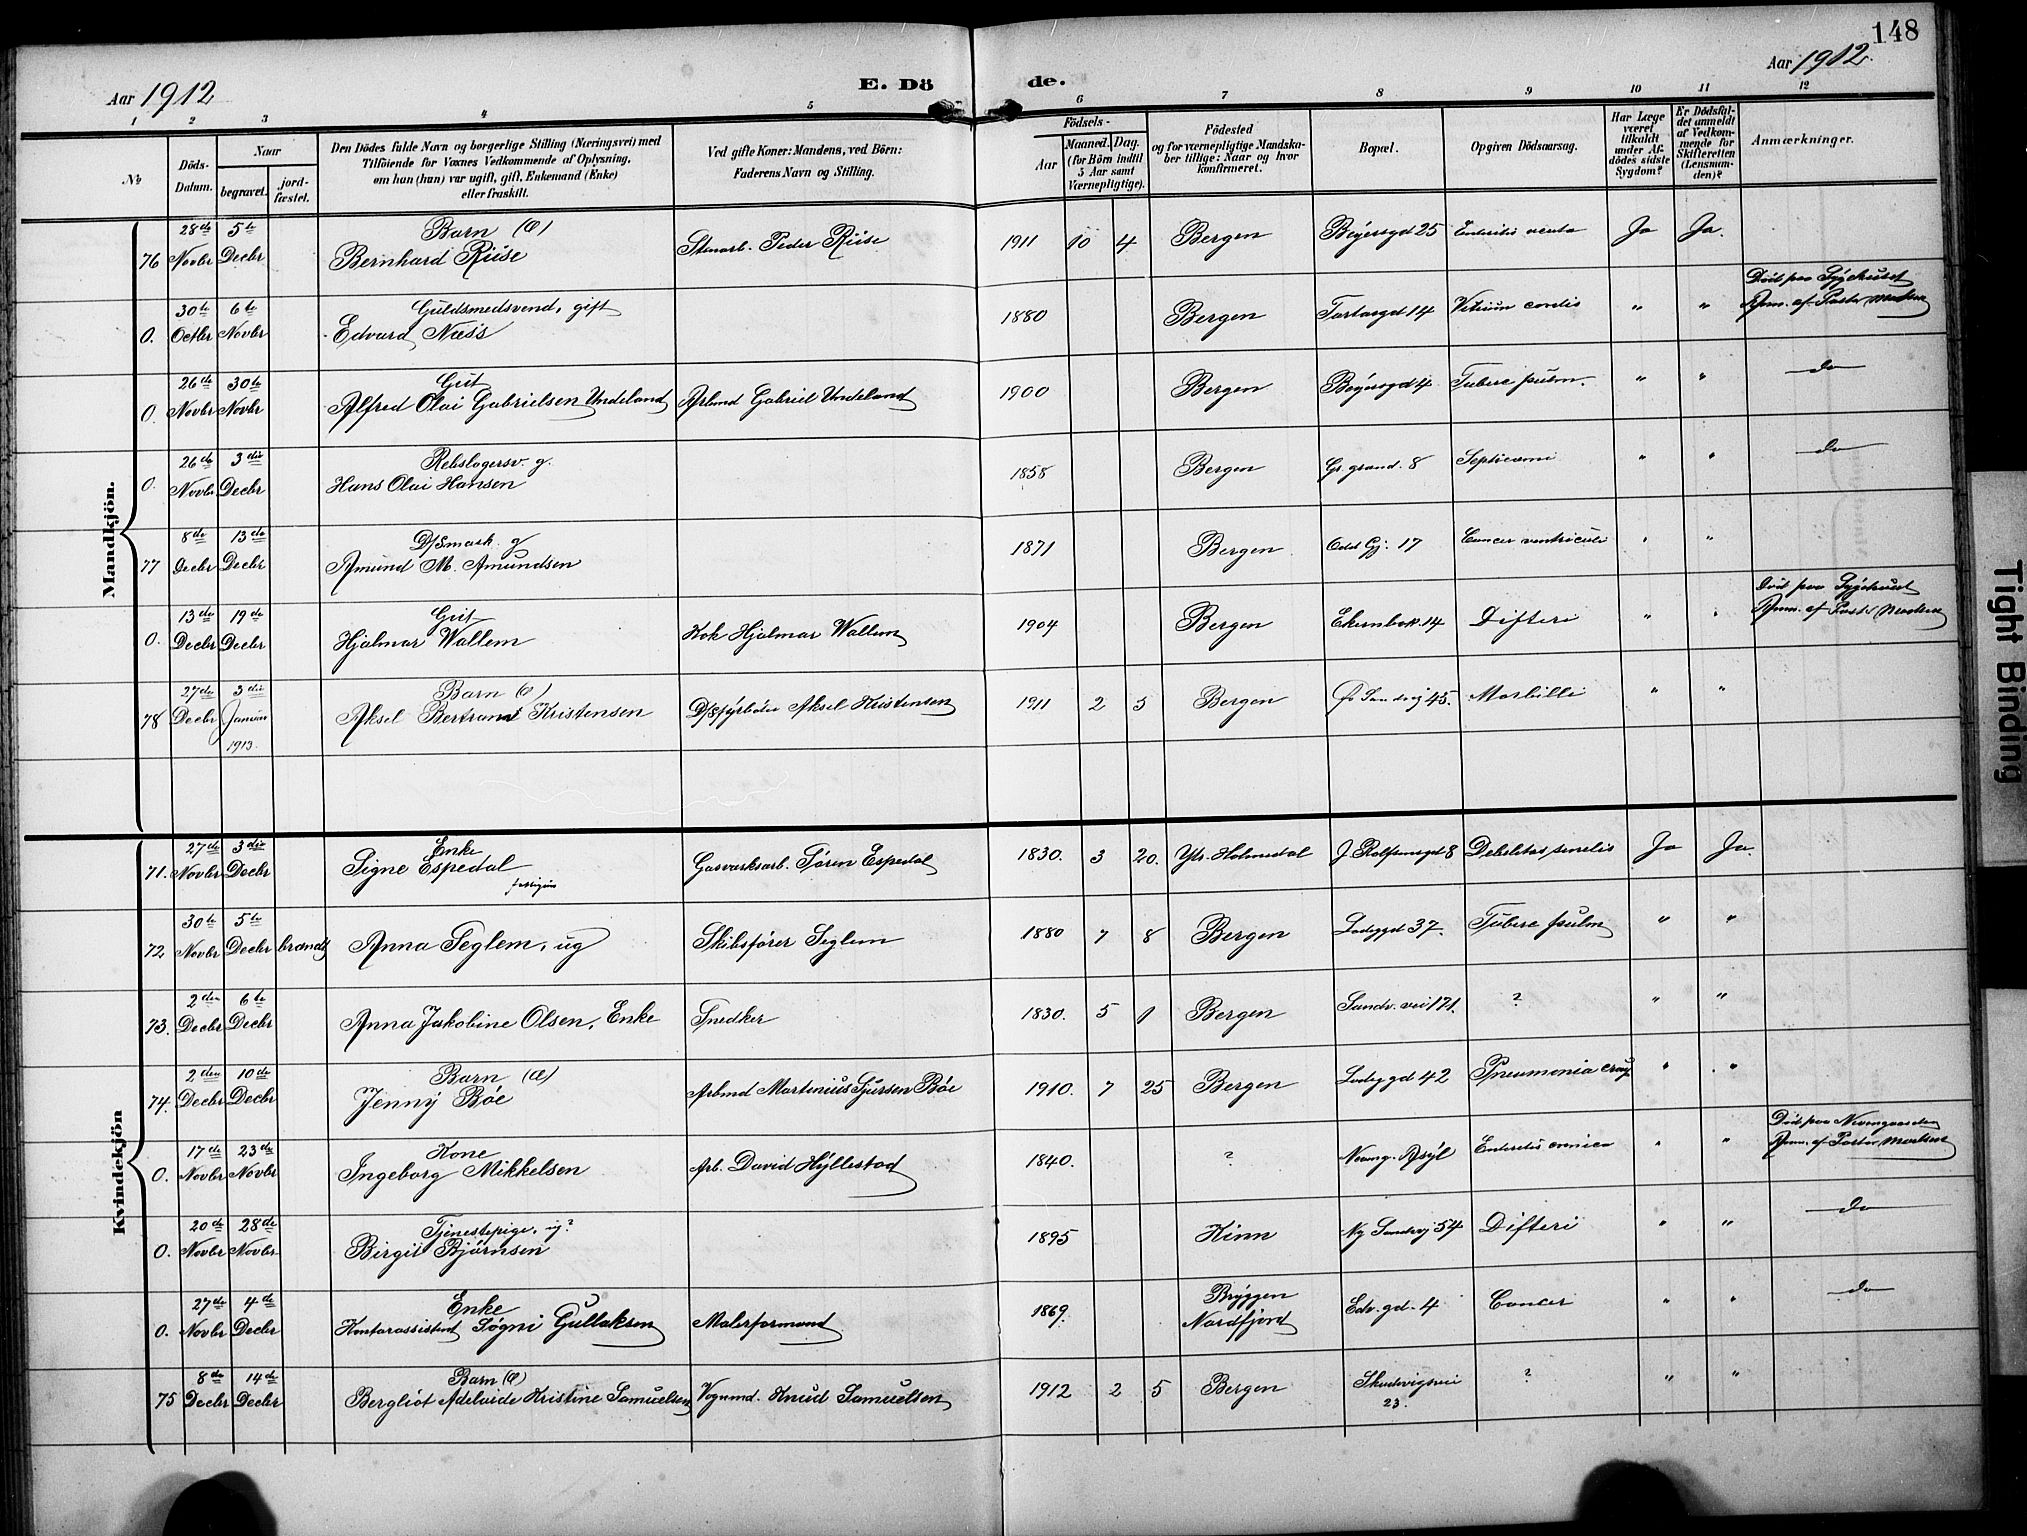 148
Aar 1912
E. Dö
de.
Aar 1912.
1 2 3 4 5 6 7 8 9 10 11 12
№
Döds-Datum.
Naar
begravet.
jord-fæstet.
Den Dödes fulde Navn og borgerlige Stilling (Næringsvei) med
Tilföiende for Voxnes Vedkommende af Oplysning,
om han (hun) var ugift, gift, Enkemand (Enke)
eller fraskilt.
Ved gifte Koner: Mandens, ved Börn:
Faderens Navn og Stilling.
Födsels-
Aar
Maaned. Dag.
(for Börn indtil
5 Aar samt
Værnepligtige).
Födested
og for værnepligtige Mandska-
ber tillige: Naar og hvor
konfirmeret.
Bopæl.
Opgiven Dödsaarsag.
Har Læge
været
tilkaldt
under Af-
dödes sidste
Sygdom?
Er Dödsfal-
det anmeldt
af Vedkom-
mende for
Skifteretten
(Lensman-
den)?
Anmærkninger.
Mandkjön.
76 28de Novbr 5te Decbr Barn (Æ) Bernhard Riise Peder Riise 1911 10 4 Bergen Beyersgd 25 Enteritis acuta Ja Ja.
0. 30te Octbr 6te Novbr Guldsmedsvend, gift Edvard Næss 1880 Bergen Tartargd 14 Vitium cordis " " Død paa Sygehuset Anm. af Pastor Madsen
0. 26de Novbr 30te Novbr Gut Alfred Olai Gabrielsen Undeland Arbmd Gabriel Undeland 1900 Bergen Beyersgd 4 Tuberc pulm. " " do
0. 26de Novbr 3die Decbr Rebslagersv. g. Hans Olai Hansen 1858 Bergen Gr. grand. 8 Septicæmi " " do
77 8de Decbr 13de Decbr D/Smask. g Amund M. Amundsen 1871 Bergen Odds Gj. 17 Cancer ventriculi " "
0. 13de Decbr 19de Decbr Gut Hjalmar Wallem Kok Hjalmar Wallem 1904 Bergen Ekernbak. 14 Difteri " " Død paa Sygehuset Anm. af Pastor Madsen
78 27de Decbr 3die Januar 1913. Barn (Æ) Aksel Bertrand Kristensen D/Sfyrbøter Aksel Kristensen 1911 2 5 Bergen 45. Morbilli " "
Kvindekjön
71. 27de Novbr 3die Decbr Enke Signe Espedal Gasværksarb. Søren Espedal 1830. 3 20. Ytr. Holmedal J. Rolfsensgd 8 Debilitas senilis Ja Ja.
72 30te Novbr 5te Decbr brændt Anna Seglem, ug Skibsfører Seglem 1880 7 8 Bergen Ladeggd 37. Tuberc pulm " "
73. 2den Decbr 6te Decbr Anna Jakobine Olsen, Enke Snedker 1830. 5 1 Bergen Sandv. vei 171. ? " "
74. 2den Decbr 10de Decbr Barn (Æ) Jenny Böe Arbmd Martinius Sjursen Böe 1910. 7 25 Bergen Ladeggd 42 Pneumonia crup " "
0. 17de Novbr 23de Novbr Kone Ingeborg Mikkelsen Arb. David Hyllestad 1840. ? Neumg. Asyl Enteritis cronica " " Død paa Neumgaarden Anm. af Pastor Madsen
0. 20de Novbr 28de Novbr Tjenestepige, ug? Birgit Bjørnsen 1895 Kinn Ny Sandvj 54 Difteri " " do
0. 27de Novbr 4de Decbr Enke Kontorassistent Søgni Gullaksen Malerformand 1869. Bryggen Nordfjord Edv. gd. 4 Cancer " " do
75 8de Decbr 14de Decbr Barn (Æ) Bergliot Adelaide Kristine Samuelsen Vognmd. Knud Samuelsen 1912 2 5 Bergen Skudevigsvei 23. ? " "
Tight Binding